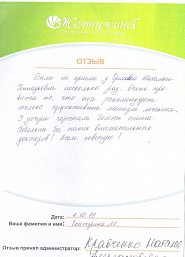 Жемчужина
ОТЗЫВ
Были на приеме у Ермаковой Натальи
несколько раз. Очень нра-
вится то, что она рекомендует
только эффективные методы лечения.
У дочери перестала болеть спина.
Побольше бы таких внимательных
докторов! Всем советую!
Дата: 4.10.19
Ваша фамилия и имя: Екатерина М.
Отзыв принял администратор: Кравченко Наталья